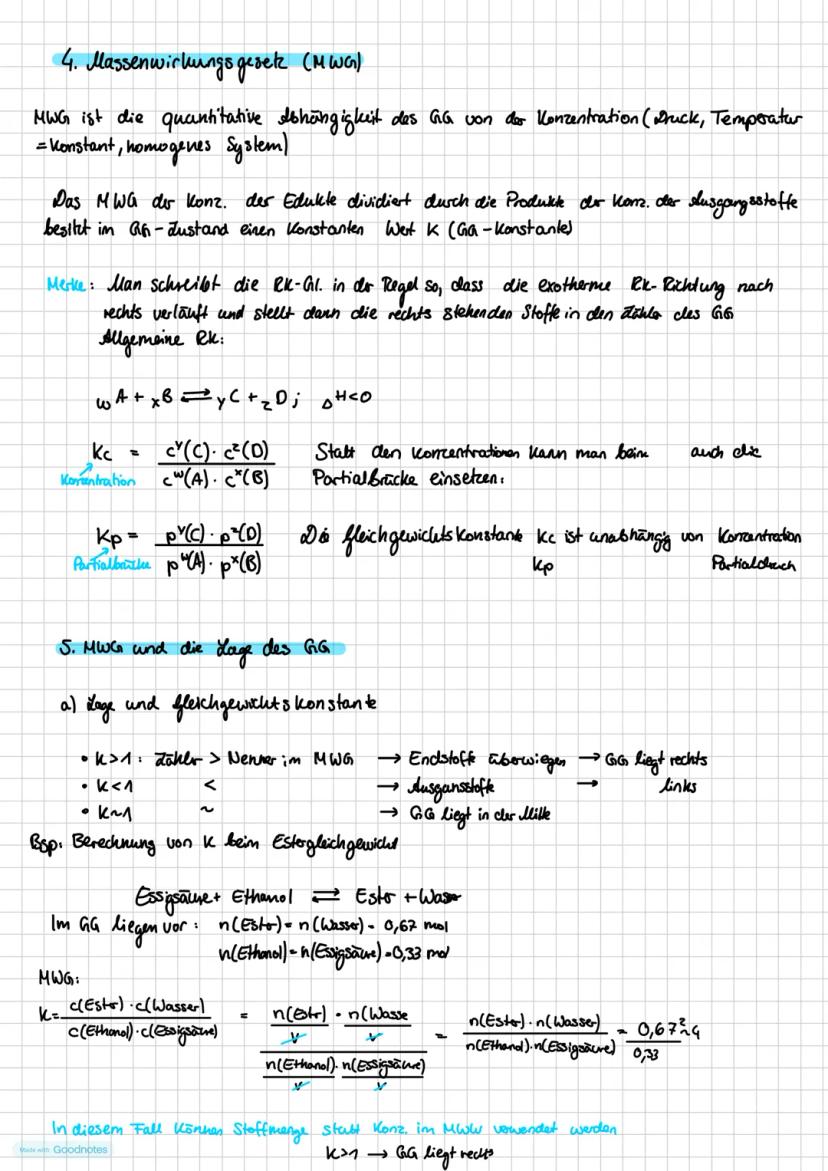 4. Massenwirkungsgesetz (MWG)
MWG ist die quantitative Abhängigkeit des GG von der Konzentration (Druck, Temperatur
= konstant, homogenes System)
Das MWG der Konz. der Edukte dividiert durch die Produkte der Konz. der Ausgangsstoffe
besitzt im GG-Zustand einen konstanten Wert K (GG-Konstante)
Merke: Man schreibt die RK-Gl. in der Regel so, dass die exotherme RK-Richtung nach
rechts verläuft und stellt dann die rechts stehenden Stoffe in den Zähler des GG
Allgemeine RK:
wA + xB ⇌ yC + zD; ΔH<0
Kc = c^y(C) · c^z(D) / c^w(A) · c^x(B) Statt den Konzentrationen kann man beim auch die
Konzentration Partialbrücke einsetzen:
Kp = p^y(C) · p^z(D) / p^w(A) · p^x(B) Die Gleichgewichtskonstante Kc ist unabhängig von Konzentration
Partialbrücke Kp Partialdruck
5. MWG und die Lage des GG
a) Lage und Gleichgewichtskonstante
• K>1: Zähler > Nenner im MWG → Endstoffe überwiegen → GG liegt rechts
• K<1 < → Ausgansstoffe → links
• K~1 ~ → GG liegt in der Mitte
Bsp: Berechnung von K beim Estergleichgewicht
Essigsäure + Ethanol ⇌ Ester + Wasser
Im GG liegen vor: n(Ester) = n(Wasser) = 0,67 mol
n(Ethanol) = n(Essigsäure) = 0,33 mol
MWG:
K = c(Ester) · c(Wasser) / c(Ethanol) · c(Essigsäure) = n(Estr)/V · n(Wasse/V / n(Ethanol)/V · n(Essigsäure)/V = n(Ester) · n(Wasser) / n(Ethanol) · n(Essigsäure) = 0,67² / 0,33 ~ 4
In diesem Fall können Stoffmenge statt Konz. im MWW verwendet werden
K>1 → GG liegt rechts
Made with Goodnotes